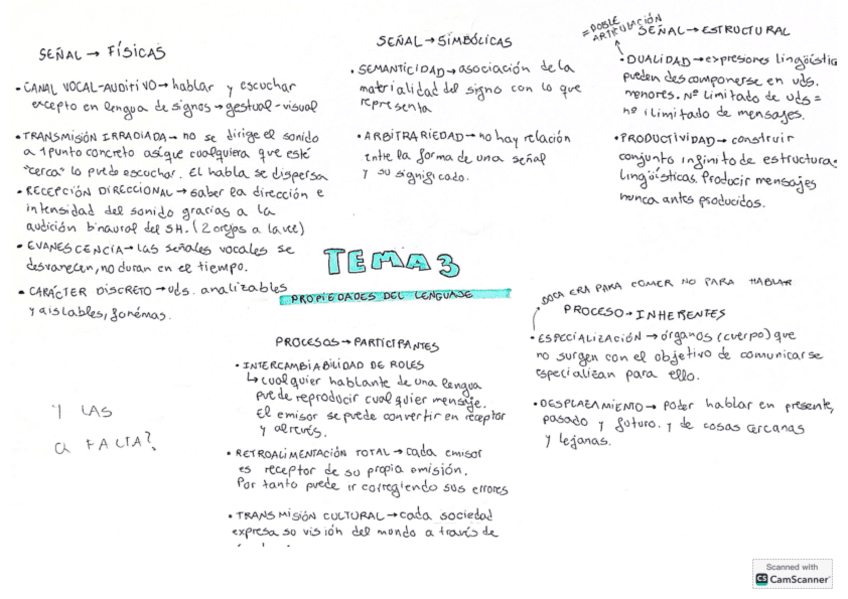 SEÑAL → FÍSICAS
• CANAL VOCAL-AUDITIVO → hablar y escuchar
excepto en lengua de signos → gestual-visual
• TRANSMISIÓN IRRADIADA → no se dirige el sonido
a 1 punto concreto así que cualquiera que esté
"cerca" lo puede escuchar. El habla se dispersa
• RECEPCIÓN DIRECCIONAL → saber la dirección e
intensidad del sonido gracias a la
audición binaural del SH. (2 orejas a la vez)
• EVANESCENCIA → las señales vocales se
desvanecen, no duran en el tiempo.
• CARÁCTER DISCRETO → uds. analizables
y aislables, fonémas.
SEÑAL → SIMBÓLICAS
• SEMANTICIDAD → asociación de la
materialidad del signo con lo que
representa
• ARBITRARIEDAD → no hay relación
entre la forma de una señal
y su significado.
= DOBLE
ARTICULACIÓN
SEÑAL → ESTRUCTURAL
• DUALIDAD → expresiones lingüística
pueden descomponerse en uds.
menores. Nº limitado de uds =
nº ilimitado de mensajes.
• PRODUCTIVIDAD → construir
conjunto infinito de estructuras
lingüísticas. Producir mensajes
nunca antes producidos.
TEMA 3
PROPIEDADES DEL LENGUAJE
PROCESOS → PARTICIPANTES
• INTERCAMBIABILIDAD DE ROLES
↳ cualquier hablante de una lengua
puede reproducir cualquier mensaje.
El emisor se puede convertir en receptor
y alrevés.
• RETROALIMENTACIÓN TOTAL → cada emisor
es receptor de su propia emisión.
Por tanto puede ir corregiendo sus errores
• TRANSMISIÓN CULTURAL → cada sociedad
expresa su visión del mundo a través de
BOCA ERA PARA COMER NO PARA HABLAR
PROCESO → INHERENTES
• ESPECIALIZACIÓN → órganos (cuerpo) que
no surgen con el objetivo de comunicar se
especializan para ello.
• DESPLAZAMIENTO → poder hablar en presente,
pasado y futuro. y de cosas cercanas
y lejanas.
Y LAS
FALTA?
Scanned with
CS CamScanner